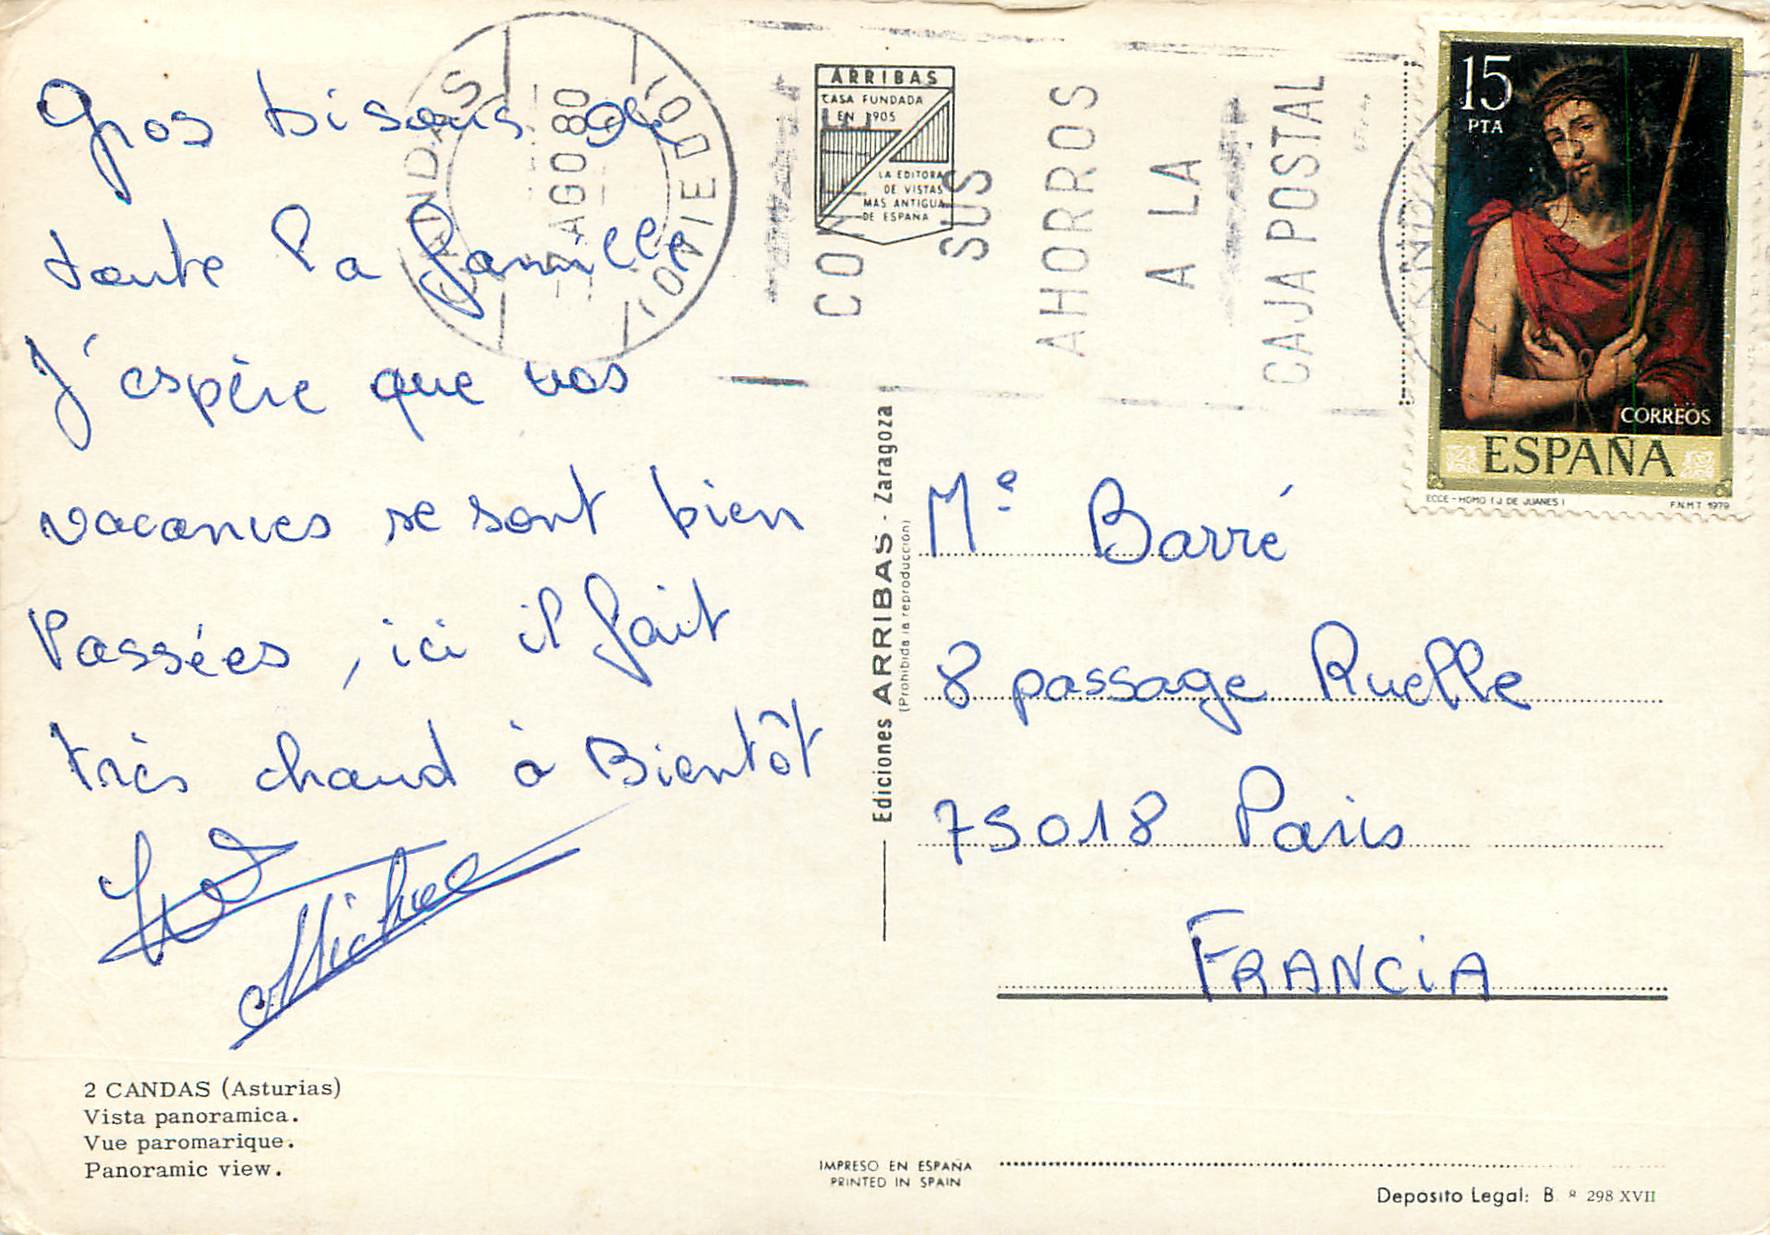 Gros bisous de
toute la famille
J'espère que vos
vacances se sont bien
Passées, ici il fait
très chaud à Bientôt
Michel
2 CANDAS (Asturias)
Vista panoramica.
Vue paromarique.
Panoramic view.
CANDAS
AGO 80
(OVIEDO)
ARRIBAS
CASA FUNDADA
EN 1905
LA EDITORA
DE VISTAS
MAS ANTIGUA
DE ESPAÑA
SUS
AHORROS
A LA
CAJA POSTAL
15
PTA
CORREOS
ESPAÑA
ECCE-HOMO (J DE JUANES)
F.N.M.T 1979
Ediciones ARRIBAS - Zaragoza
(Prohibida la reproducción)
Me Barré
8 passage Ruelle
75018 Paris
FRANCiA
IMPRESO EN ESPAÑA
PRINTED IN SPAIN
Deposito Legal: B. 298 XVII